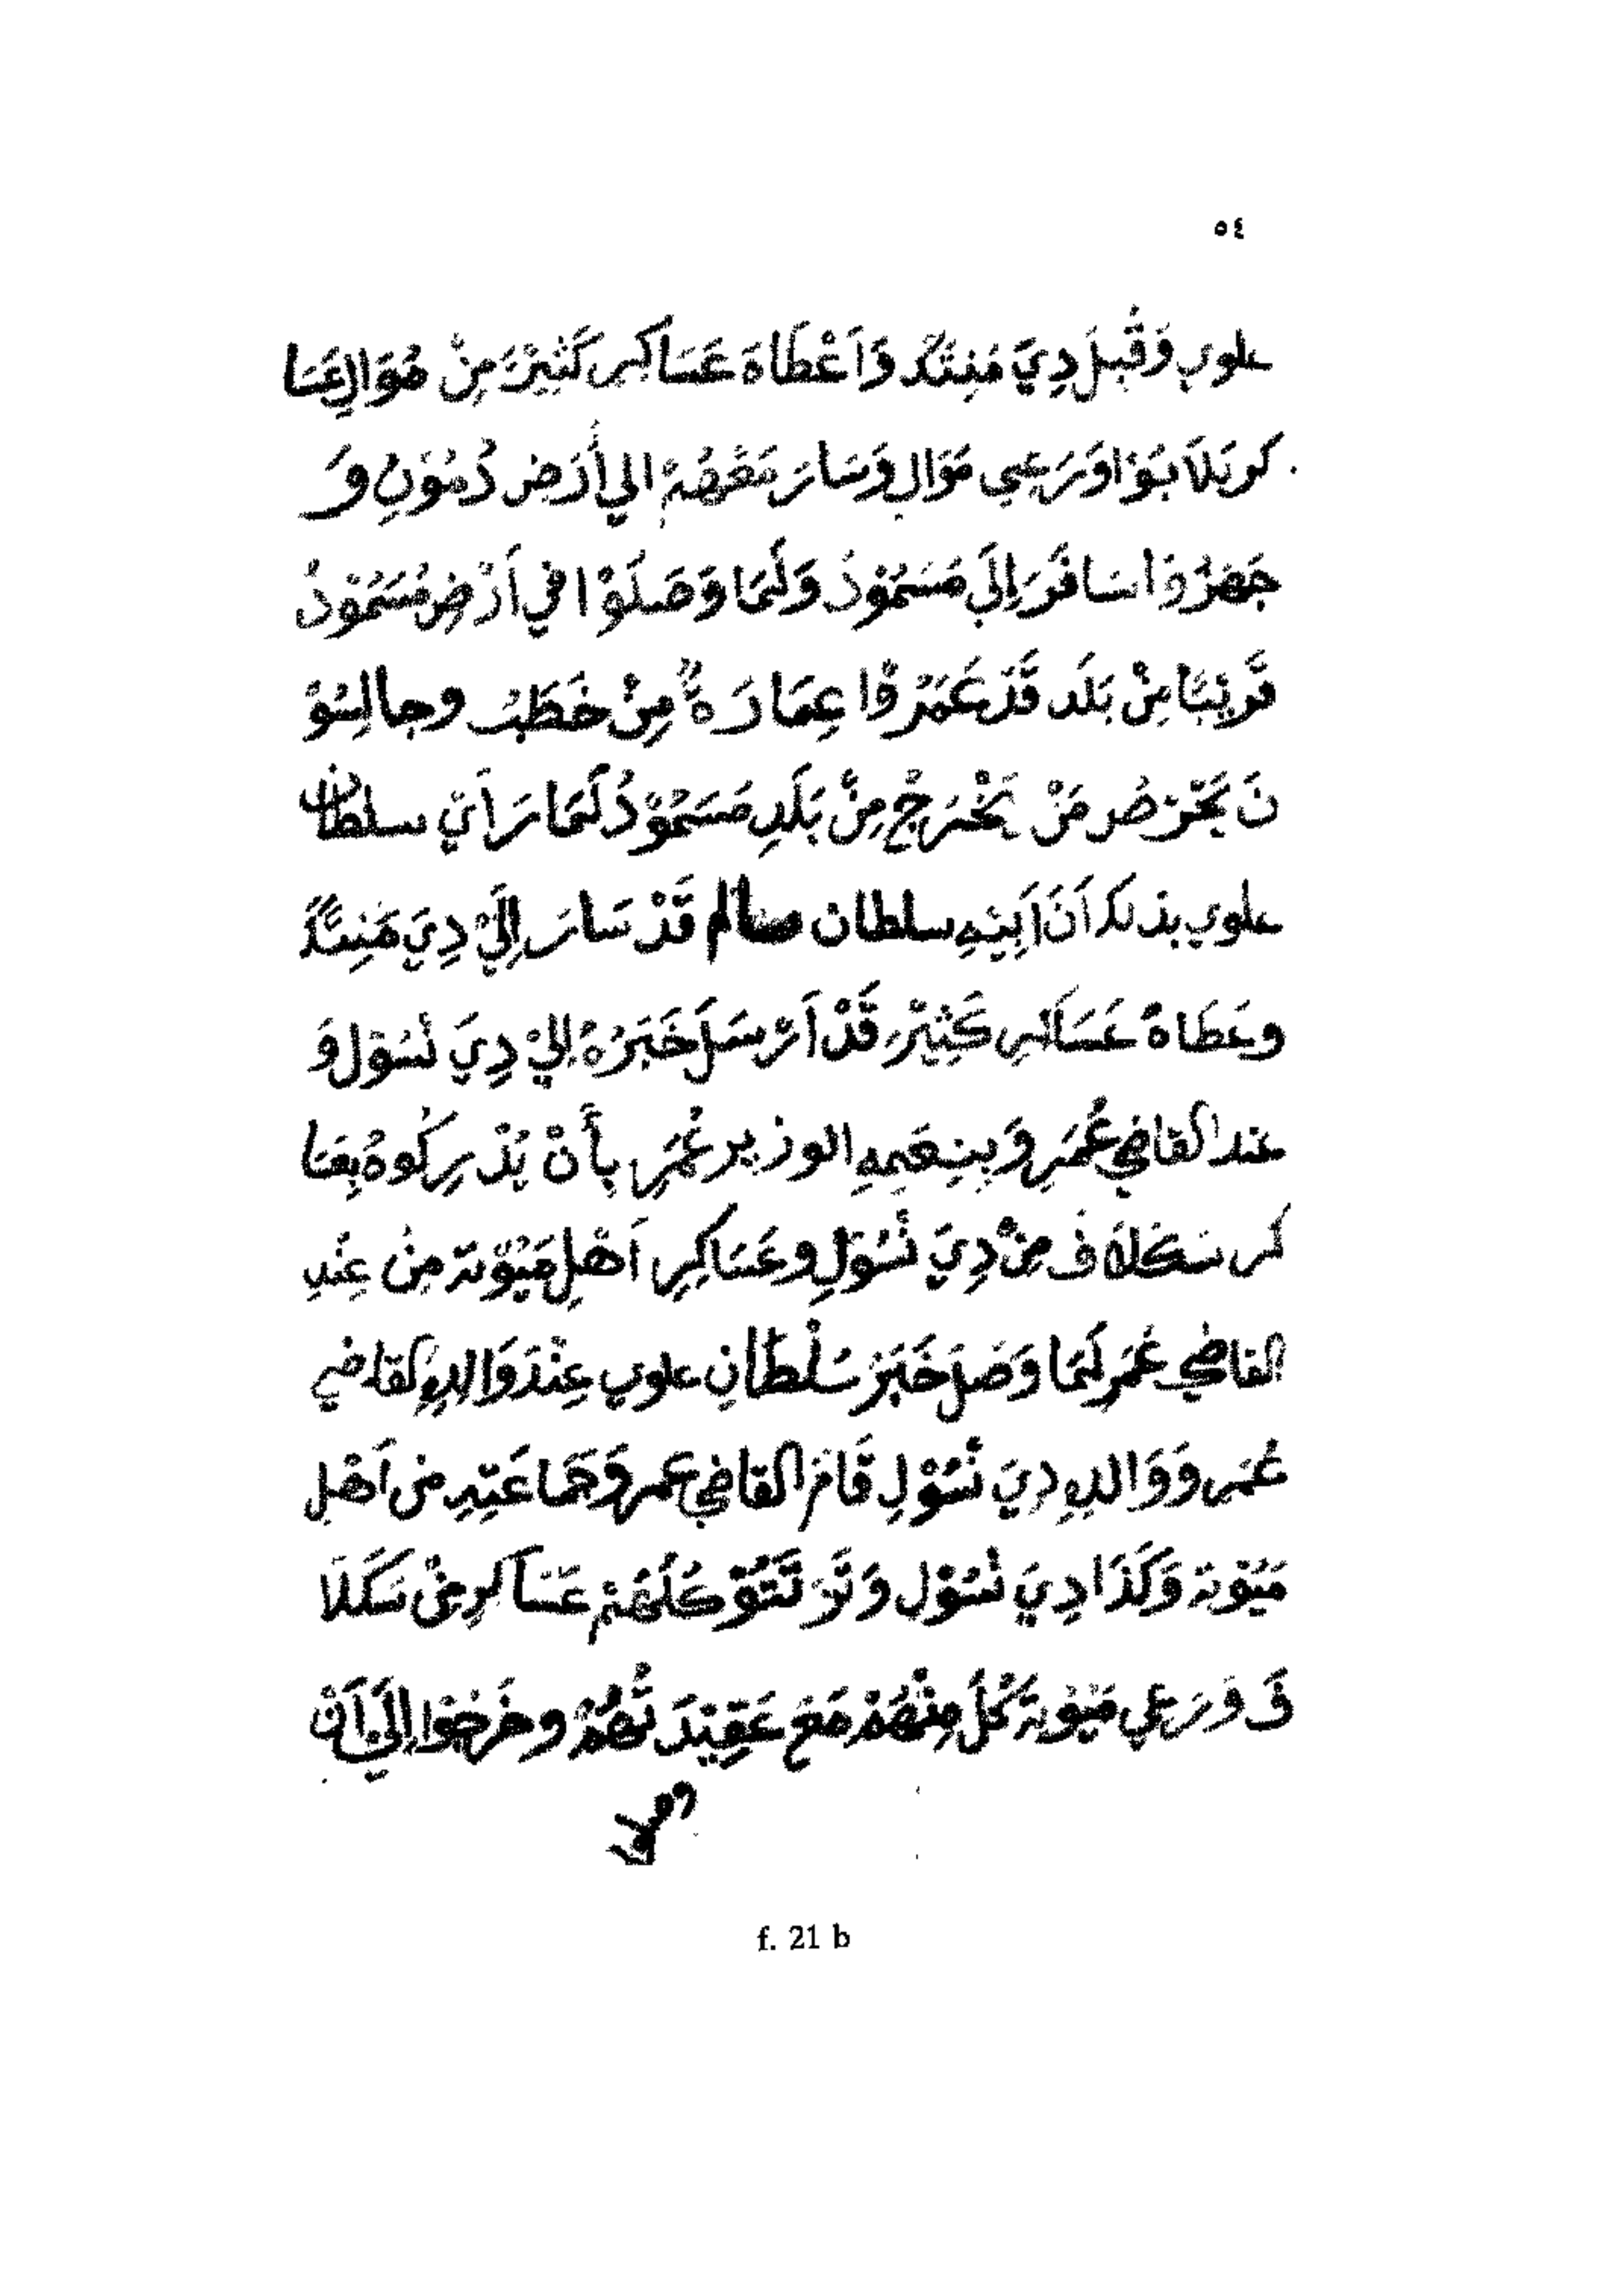 ٥٤
علوي وَقَبِلَ دِيَ مَنِتَنْد وَاَعْطَاهَ عَسَاكِر كَثِيْرَ مِنْ مُوَالِ عَسَا
كر بَلَا بَوَا وَرَعِي مَوَالِ وَسَارَ مَعَهُمْ الي أَرَض دُمُوَنِ وَ
جَهَزُوا سَافَرَ اِلَي مَسَمُوْدُ وَلَمَا وَصَلَوْا فِي اَرْضِ مُسَمُوْدُ
قَرِيْبًا مِنْ بَلَد قَدْ عَمَرُوْا عِمَارَةً مِنْ خَطَبْ وجالِسُوْ
نَ يَحْرَصُ مَنْ يَخْرَجْ مِنْ بَلَدِ مَسَمُوْدُ لَمَا رَاَيَ سلطان
علوي بذلك اَنَ اَبِيْهِ سلطان صالم قَدْ سَارَ اِلَيْ دِيَ مَنِتَنْدَ
وعَطَاهُ عَسَاكِر كَثِيْرْ قَدْ اَرْسَلَ خَبَرُهُ الِيْ دِيَ نْسُوَل وَ
عند القاضي عُمَرِ وَبِنِعَمِهِ الوزير عُمَرِ بِأَنْ يُدْرِكُوهُ بِعَسَا
كر سَكَلاَف مِنْ دِيَ نْسُوَلِ وعَسَاكِرِ اَهْلِ مَيُوْتة مِنْ عِنْدِ
القاضِي عُمَر لَمَا وَصَلَ خَبَرْ سَلْطَانِ علوي عِنْدَ وَالِدِهِ القاضي
عُمَر وَوَالِدِهِ دِيَ نْسُوْلِ قَامَ القاضي عمر وَجَمَاعَتِهِ من اَهْل
مَيُوْتة وَكَذَا دِيَ نْسُوْل وَتَرَتَّبُوْ كُلُهُمْ عَسَاكِرِ مِنْ سَكَلاَ
فَ وَرَعِي مَيُوْتةَ كُلَ مِنْهُمْ مَعَ عَقِيْدَتُهُمْ وخَرَجُوا اِلَي اَنْ
f. 21 b